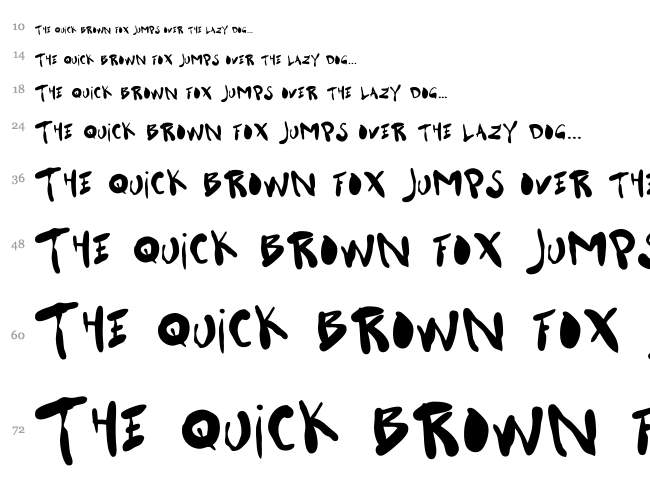 10 THE QUiCK BROWN FOX JUMPS OVER THE LAZY DOG...
14 THE QUiCK BROWN FOX JUMPS OVER THE LAZY DOG...
18 THE QUiCK BROWN FOX JUMPS OVER THE LAZY DOG...
24 THE QUiCK BROWN FOX JUMPS OVER THE LAZY DOG...
36 THE QUiCK BROWN FOX JUMPS OVER THE
48 THE QUiCK BROWN FOX JUMPS
60 THE QUiCK BROWN FOX
72 THE QUiCK BROWN F